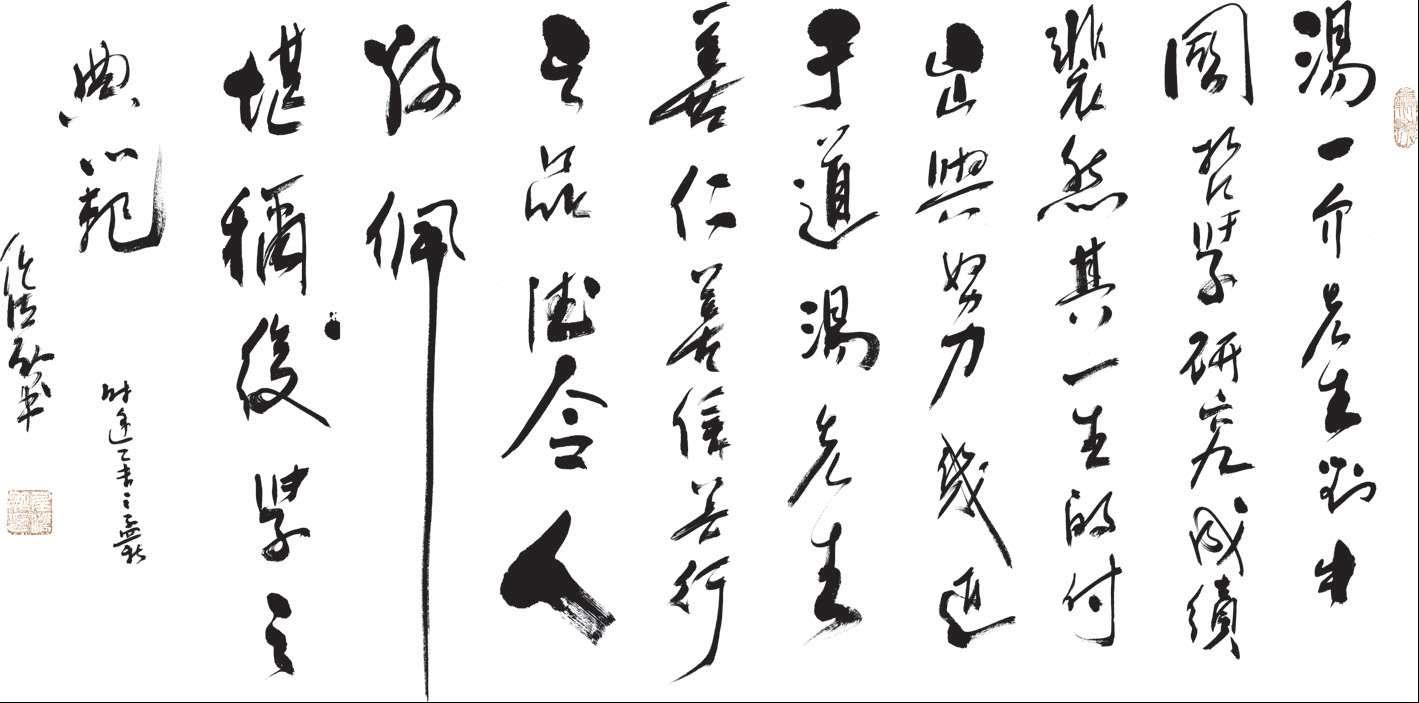 湯一介先生對中
國哲學研究成績
裴然其一生的付
出與努力幾近
于道湯先生
善仁善信善行
之品德令人
敬佩
堪稱後學之
典範
時逢乙未之孟秋